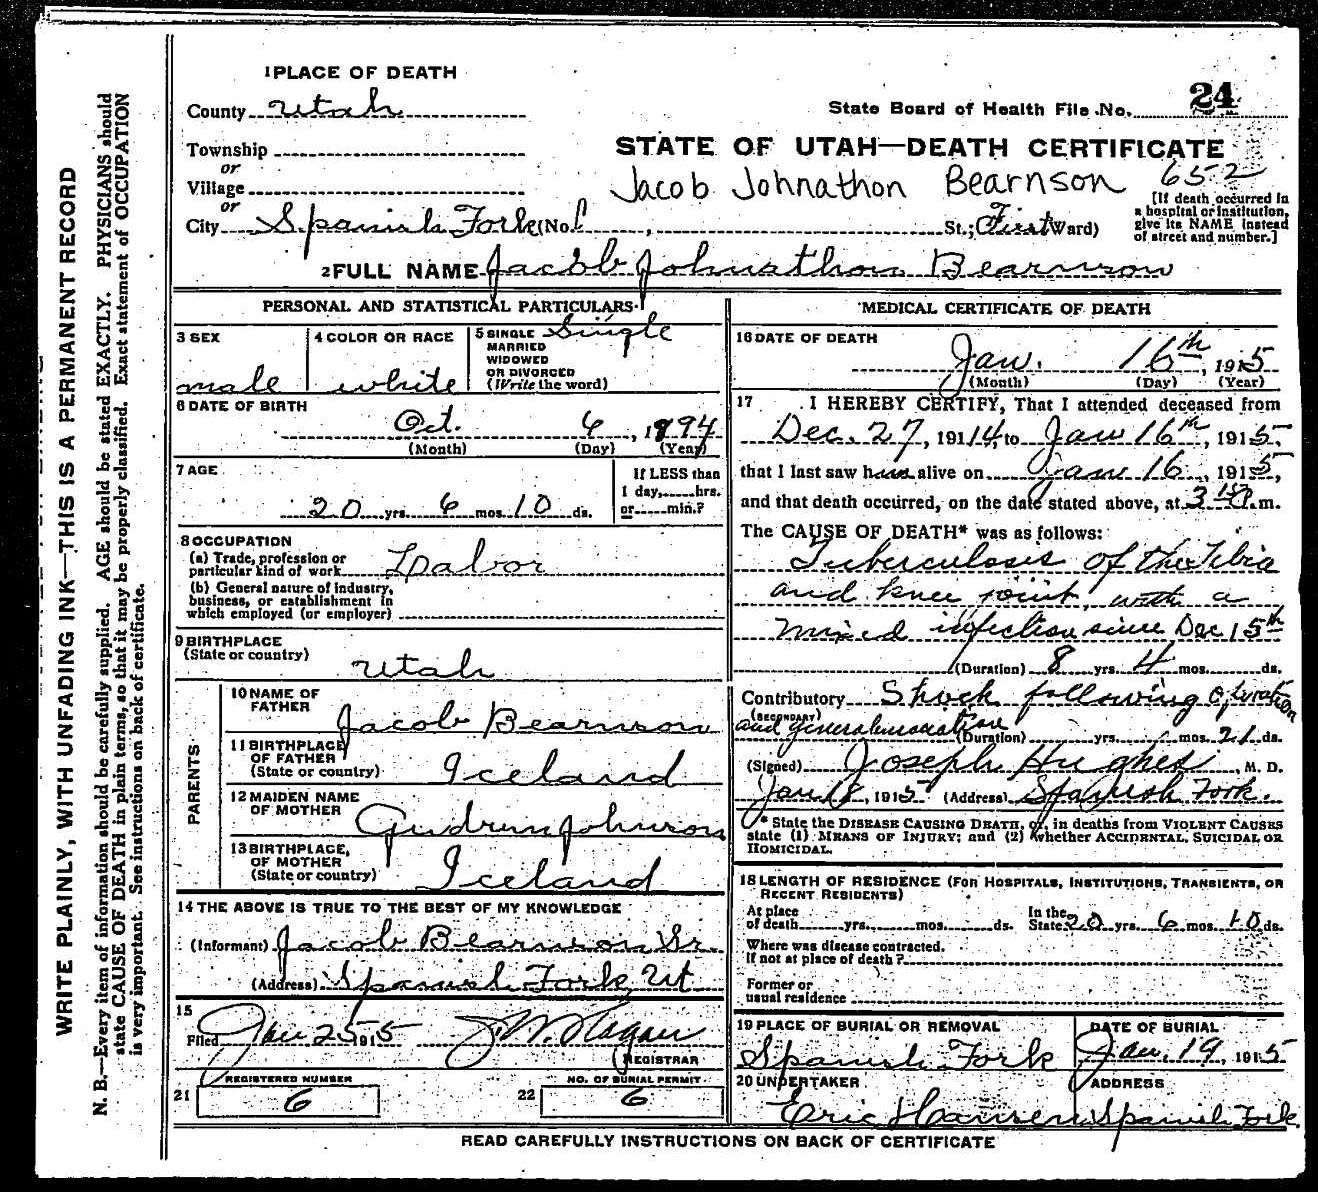 1 PLACE OF DEATH
County Utah
Township
or
Village
or
City Spanish Fork (No. , St.; First Ward)
State Board of Health File No. 24
STATE OF UTAH—DEATH CERTIFICATE
Jacob Johnathon Bearnson 652
[If death occurred in
a hospital or institution,
give its NAME instead
of street and number.]
2 FULL NAME Jacob Johnathon Bearnson
PERSONAL AND STATISTICAL PARTICULARS
3 SEX
male
4 COLOR OR RACE
white
5 SINGLE Single
MARRIED
WIDOWED
OR DIVORCED
(Write the word)
6 DATE OF BIRTH
Oct. 6, 1894
(Month) (Day) (Year)
7 AGE
20 yrs. 6 mos. 10 ds.
If LESS than
1 day, hrs.
or min.?
8 OCCUPATION
(a) Trade, profession or
particular kind of work Labor
(b) General nature of industry,
business, or establishment in
which employed (or employer)
9 BIRTHPLACE
(State or country)
Utah
PARENTS
10 NAME OF
FATHER
Jacob Bearnson
11 BIRTHPLACE
OF FATHER
(State or country) Iceland
12 MAIDEN NAME
OF MOTHER Gudrun Johnson
13 BIRTHPLACE,
OF MOTHER
(State or country) Iceland
14 THE ABOVE IS TRUE TO THE BEST OF MY KNOWLEDGE
(Informant) Jacob Bearnson Sr.
(Address) Spanish Fork, Ut
15
Filed Jan 25 1915
REGISTRAR
21 REGISTERED NUMBER
6
22 NO. OF BURIAL PERMIT
6
MEDICAL CERTIFICATE OF DEATH
16 DATE OF DEATH
Jan. 16th, 1915
(Month) (Day) (Year)
17 I HEREBY CERTIFY, That I attended deceased from
Dec. 27, 1914, to Jan 16th, 1915,
that I last saw him alive on Jan 16, 1915,
and that death occurred, on the date stated above, at 3 15 a.m.
The CAUSE OF DEATH* was as follows:
Tuberculosis of the Tibia
and knee joint, with a
mixed infection since Dec 15th
(Duration) 8 yrs. 4 mos. ds.
Contributory Shock following operation
(SECONDARY)
and general
(Duration) yrs. mos. 21 ds.
(Signed) Joseph Hughes, M. D.
Jan 18, 1915 (Address) Spanish Fork.
* State the DISEASE CAUSING DEATH, or, in deaths from VIOLENT CAUSES
state (1) MEANS OF INJURY; and (2) whether ACCIDENTAL, SUICIDAL OR
HOMICIDAL.
18 LENGTH OF RESIDENCE (FOR HOSPITALS, INSTITUTIONS, TRANSIENTS, OR
RECENT RESIDENTS)
At place
of death yrs. mos. ds.
In the
State 20 yrs. 6 mos. 10 ds.
Where was disease contracted.
If not at place of death?
Former or
usual residence
19 PLACE OF BURIAL OR REMOVAL
Spanish Fork
DATE OF BURIAL
Jan. 19, 1915
20 UNDERTAKER
Eric Hansen
ADDRESS
Spanish Fork
READ CAREFULLY INSTRUCTIONS ON BACK OF CERTIFICATE
WRITE PLAINLY, WITH UNFADING INK—THIS IS A PERMANENT RECORD
N. B.—Every item of information should be carefully supplied. AGE should be stated EXACTLY. PHYSICIANS should
state CAUSE OF DEATH in plain terms, so that it may be properly classified. Exact statement of OCCUPATION
is very important. See instructions on back of certificate.